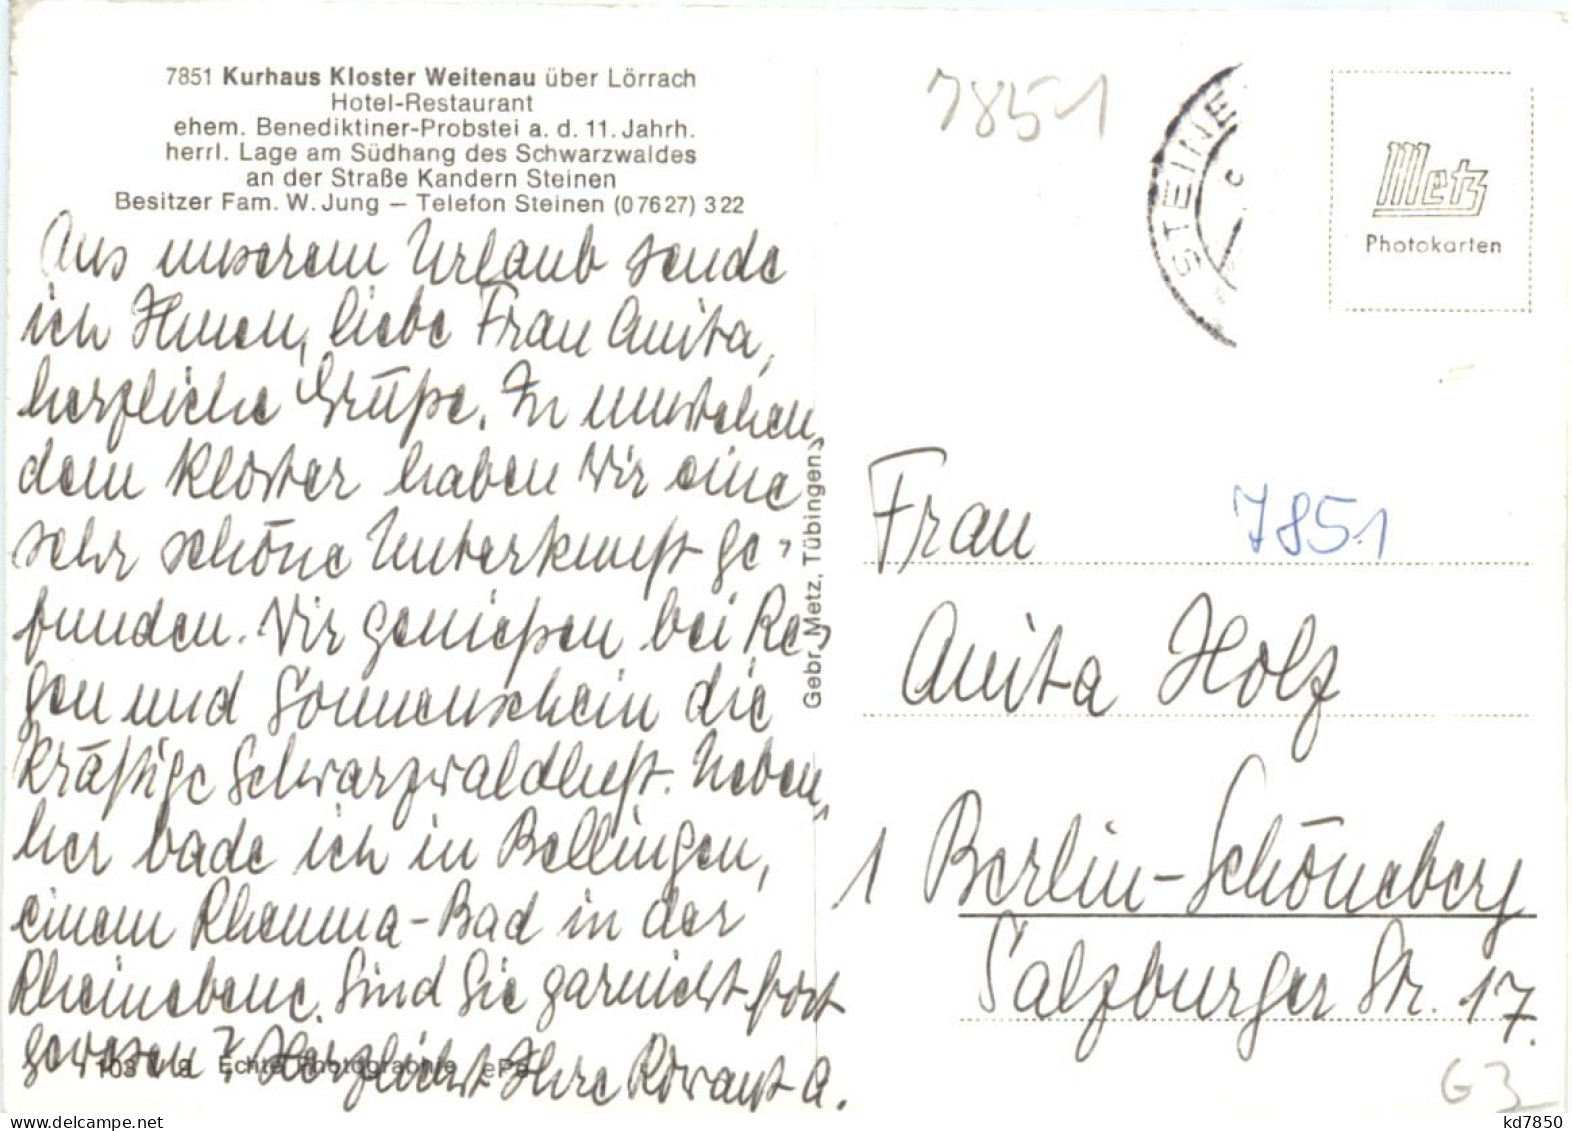 7851 Kurhaus Kloster Weitenau über Lörrach
Hotel-Restaurant
ehem. Benediktiner-Probstei a. d. 11. Jahrh.
herrl. Lage am Südhang des Schwarzwaldes
an der Straße Kandern Steinen
Besitzer Fam. W. Jung – Telefon Steinen (07627) 322
Aus unserem Urlaub sende
ich Ihnen, liebe Frau Anita,
herzliche Grüße. In umstehen-
dem Kloster haben wir eine
sehr schöne Unterkunft ge-
funden. Wir genießen bei Re-
gen und Sonnenschein die
kräftige Schwarzwaldluft. Neben-
her bade ich in Bellingen,
einem Rheuma-Bad in der
Rheinebene. Sind Sie garnicht fort
gewesen? Herzlichst Ihre A.
103 9 Echte Photographie
Gebr. Metz, Tübingen
7851
STEINE
Metz
Photokarten
Frau
7851
Anita Holz
1 Berlin-Schöneberg
Salzburger Str. 17.
G3
kd7850